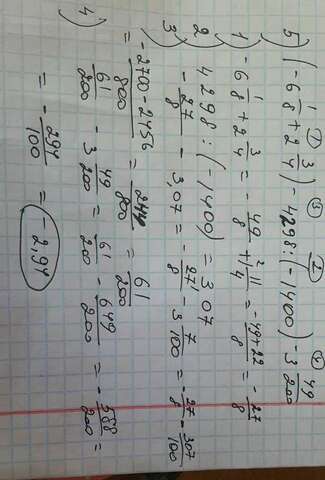 ① ③ ② ④
5) (-6 1/8 + 2 3/4) - 4298 : (-1400) - 3 49/200
1) -6 1/8 + 2 3/4 = -49/8 + 11/4 = -49+22/8 = -27/8
2) 4298 : (-1400) = 307
3) -27/8 - 3,07 = -27/8 - 3 7/100 = -27/8 - 307/100
= -2700-2456/800 = 244/800 = 61/200
4) 61/200 - 3 49/200 = 61/200 - 649/200 = -588/200 =
= -294/100 = -2,94